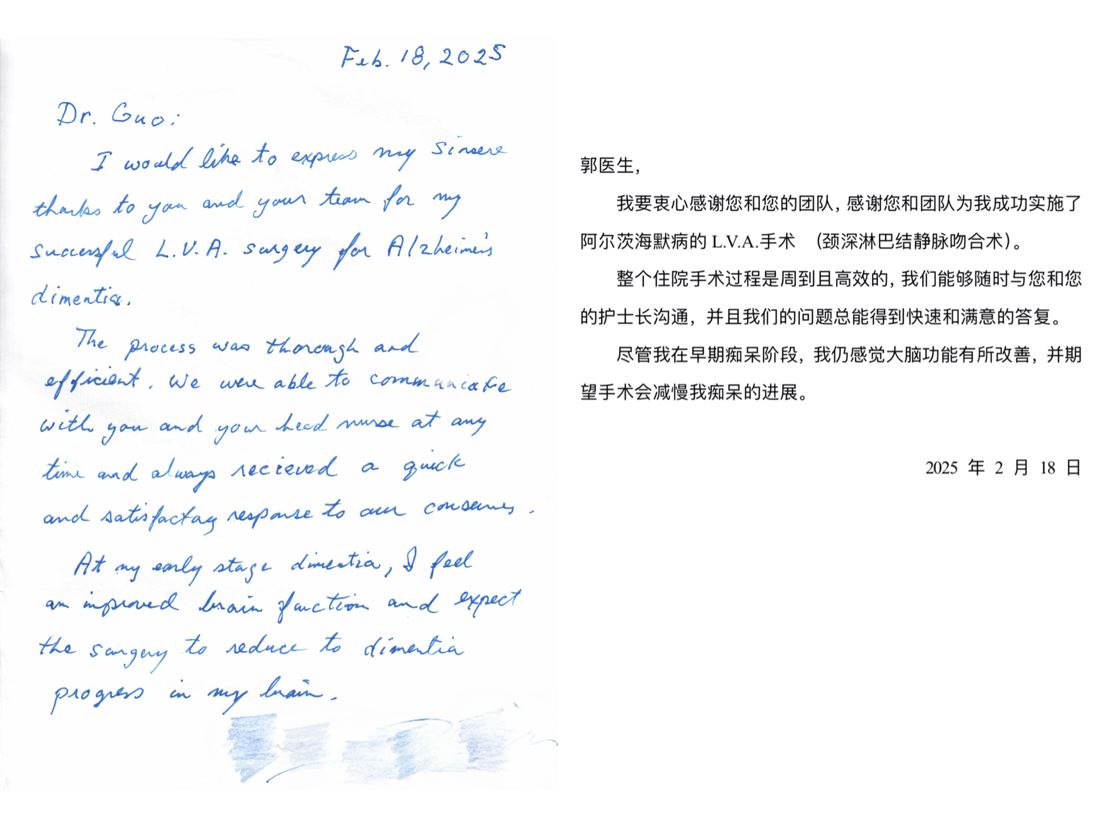 Feb. 18, 2025
Dr. Guo:
I would like to express my sinsere
thanks to you and your team for my
successful L.V.A. surgery for Alzheimer's
dimentia.
The process was thorough and
efficient. We were able to communicate
with you and your head nurse at any
time and always recieved a quick
and satisfactory response to our concerns.
At my early stage dimentia, I feel
an improved brain function and expect
the surgery to reduce to dimentia
progress in my brain.
郭医生，
我要衷心感谢您和您的团队，感谢您和团队为我成功实施了
阿尔茨海默病的 L.V.A.手术 （颈深淋巴结静脉吻合术）。
整个住院手术过程是周到且高效的，我们能够随时与您和您
的护士长沟通，并且我们的问题总能得到快速和满意的答复。
尽管我在早期痴呆阶段，我仍感觉大脑功能有所改善，并期
望手术会减慢我痴呆的进展。
2025 年 2 月 18 日